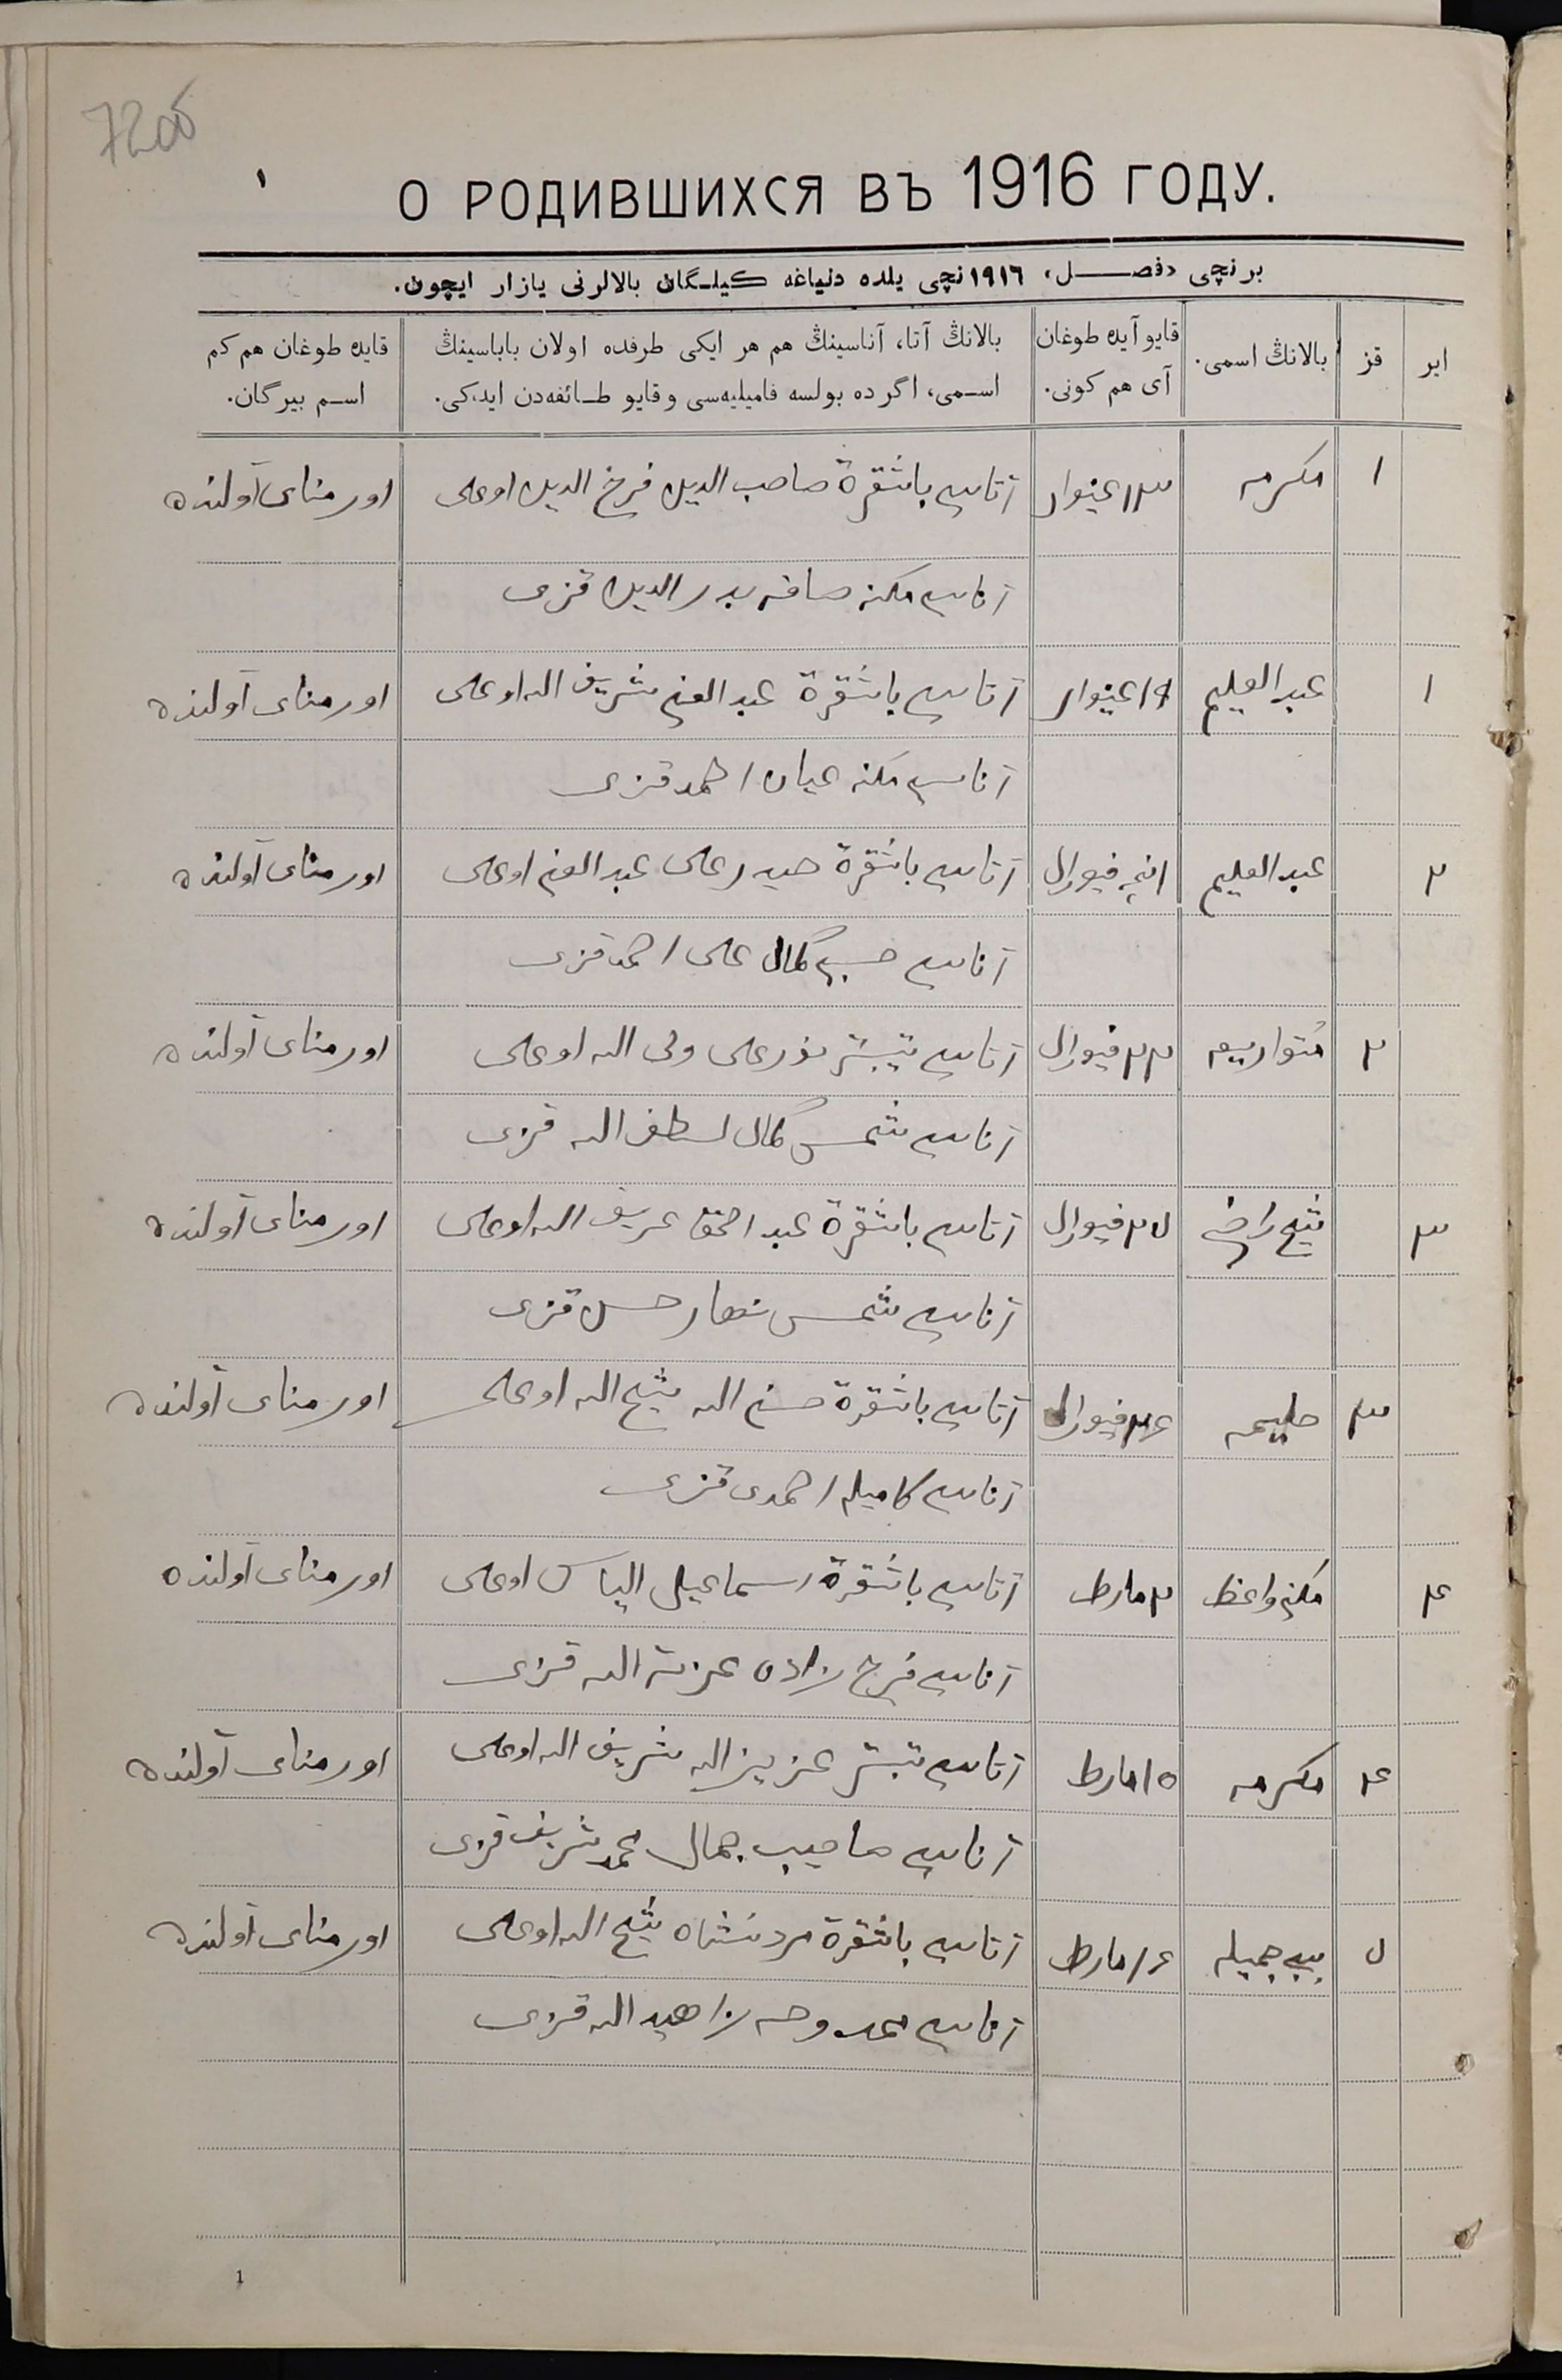 72об
О РОДИВШИХСЯ ВЪ 1916 ГОДУ.
١
برنچی «فصل» ١٩١٦نچی یلده دنیاغه کیلگان بالالرنی یازار ایچون.
ایر | قز | بالانڭ اسمی. | قایو آیده طوغان آی هم کونی. | بالانڭ آتا، آناسینڭ هم هر ایکی طرفده اولان باباسینڭ اسمی، اگرده بولسه فامیلیه‌سی و قایو طائفه‌دن ایدکی. | قایده طوغان هم کم اسم بیرگان.
١ مکرمه ١٣ غینوار آتاسی باشقرة صاحب الدین فرخ الدین اوغلی اورمنای آولنده
آناسی مکنه صافه بدر الدین قزی
١ عبد العلیم ١٩ غینوار آتاسی باشقرة عبد الغنی شریف الله اوغلی اورمنای آولنده
آناسی مکنه عیان احمد قزی
٢ عبد العلیم ١نچی فیورال آتاسی باشقرة حیدر علی عبد الغنی اوغلی اورمنای آولنده
آناسی کمال علی احمد قزی
٢ فیورال آتاسی تیبتر نور علی ولی الله اوغلی اورمنای آولنده
آناسی شمس کمال لطف الله قزی
٣ شیخ راضی ٢٥ فیورال آتاسی باشقرة عبد الحق عریف الله اوغلی اورمنای آولنده
آناسی شمس نهار حسن قزی
٣ حلیمه ٢٤ فیورال آتاسی باشقرة شیخ الله اوغلی اورمنای آولنده
آناسی کامیله احمدی قزی
٤ واعظ ٢ مارط آتاسی باشقرة اسماعیل الیاس اوغلی اورمنای آولنده
آناسی فرح زاده عزت الله قزی
٤ مکرمه ١٥ مارط آتاسی تیبتر عزیز الله شریف الله اوغلی اورمنای آولنده
آناسی صاحب جمال محمد شریف قزی
٥ بیبی جمیله ١٤ مارط آتاسی باشقرة مردنشاه شیخ الله اوغلی اورمنای آولنده
آناسی ممدوحه زاهید الله قزی
1